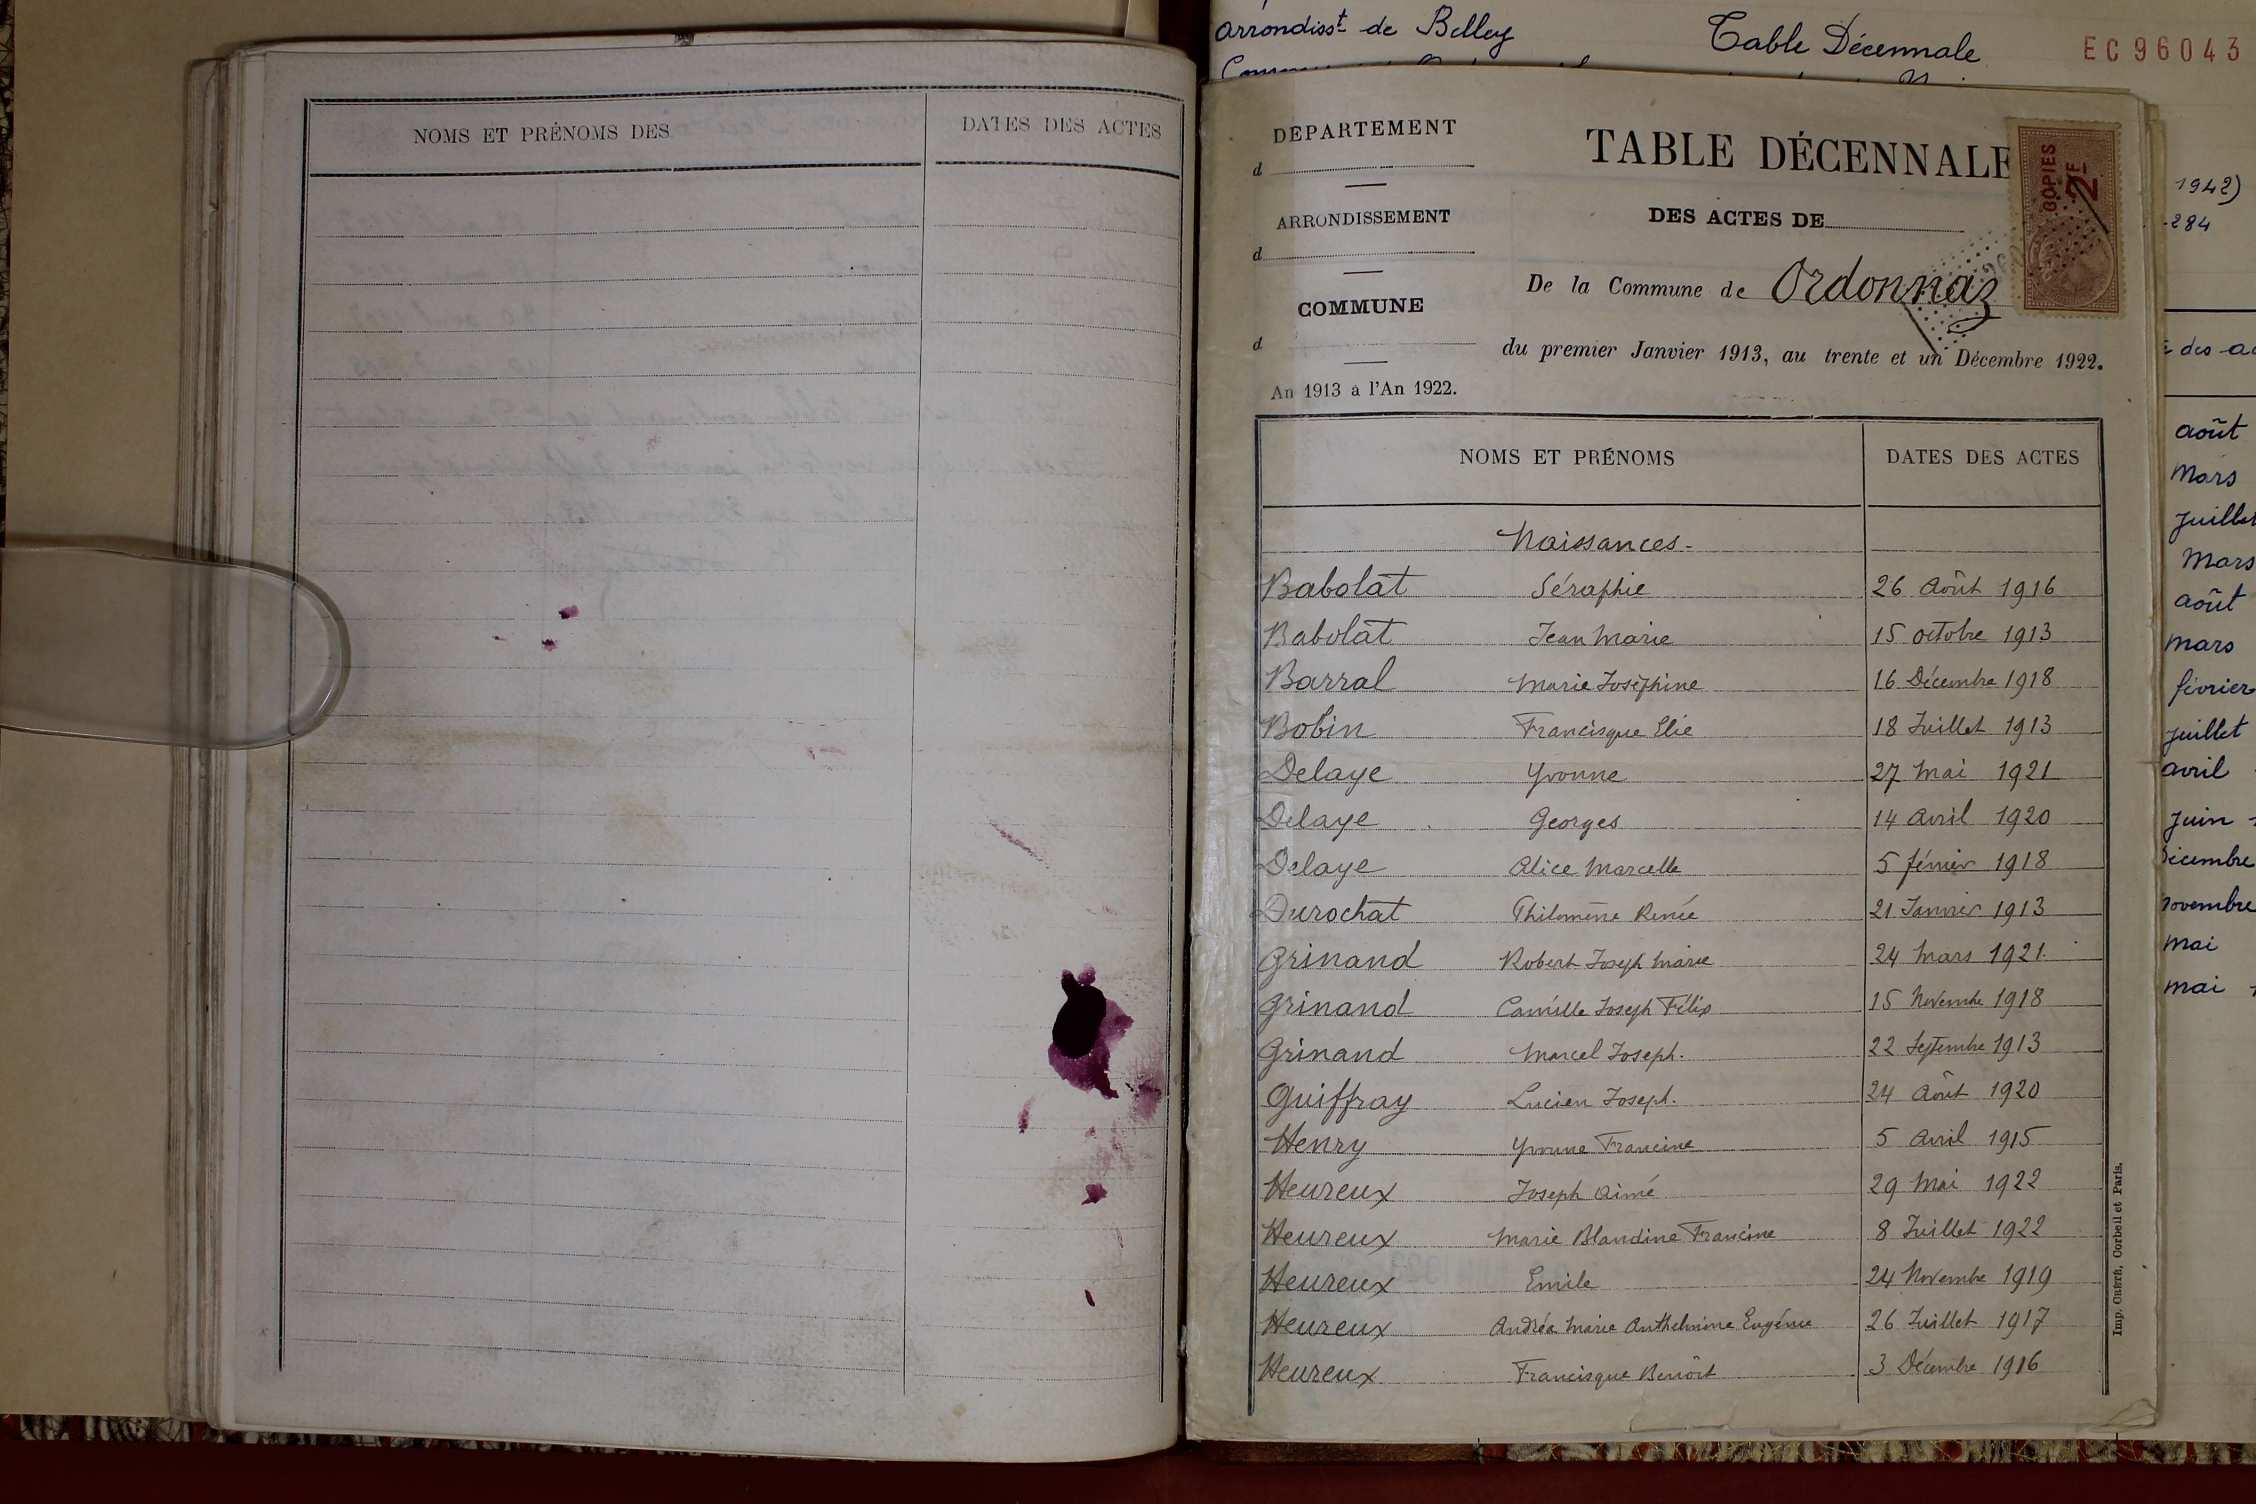 NOMS ET PRÉNOMS DES
DATES DES ACTES
arrondisst de Belley
Table Décennale
EC96043
DEPARTEMENT
d
ARRONDISSEMENT
d
COMMUNE
d
An 1913 à l'An 1922.
TABLE DÉCENNALE
DES ACTES DE
De la Commune de Ordonnaz
du premier Janvier 1913, au trente et un Décembre 1922.
COPIES
2F
NOMS ET PRÉNOMS DATES DES ACTES
Naissances-
Babolat Séraphie 26 Août 1916
Babolat Jean Marie 15 octobre 1913
Barral Marie Joséphine 16 Décembre 1918
Bobin Francisque Elie 18 Juillet 1913
Delaye Yvonne 27 Mai 1921
Delaye Georges 14 Avril 1920
Delaye Alice Marcelle 5 février 1918
Durochat Philomène Renée 21 Janvier 1913
Grinand Robert Joseph Marie 24 Mars 1921
Grinand Camille Joseph Félix 15 Novembre 1918
Grinand Marcel Joseph. 22 Septembre 1913
Guiffray Lucien Joseph. 24 Août 1920
Henry Yvonne Francine 5 Avril 1915
Heureux Joseph Aimé 29 Mai 1922
Heureux Marie Blandine Francine 8 Juillet 1922
Heureux Emile 24 Novembre 1919
Heureux Andréa Marie Anthelmine Eugénie 26 Juillet 1917
Heureux Francisque Benoît 3 Décembre 1916
Imp. CRÉTÉ, Corbeil et Paris.
1942)
-284
des ac
août
Mars
Juillet
Mars
août
mars
février
juillet
avril
juin
décembre
novembre
mai
mai